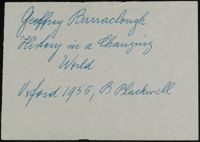 Geoffrey Barraclough
History in a Changing
World
Oxford 1955, B Blackwell